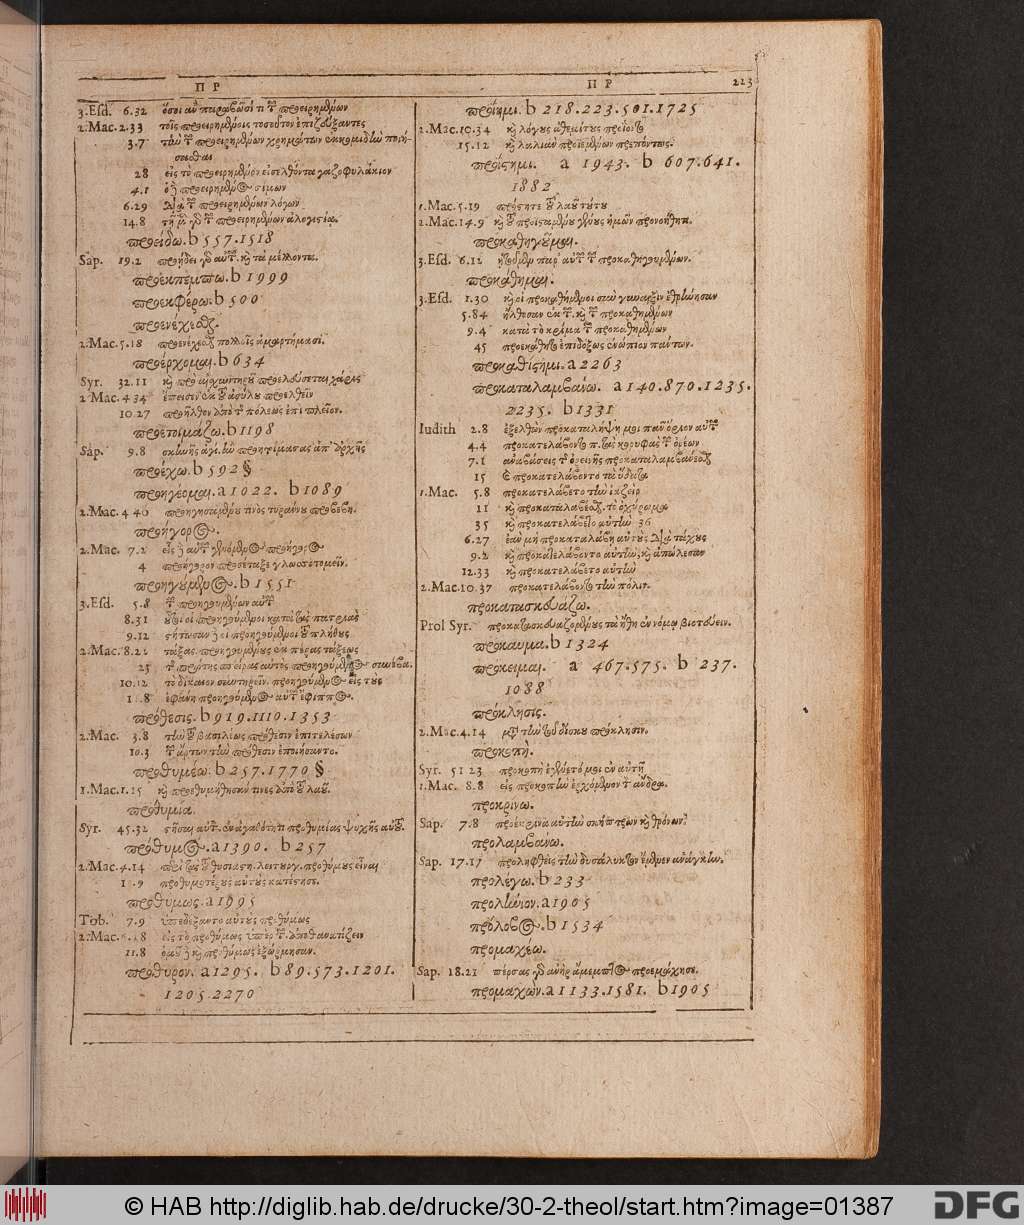 Π Ρ
Π Ρ 223
3.Esd. 6.32 ὅσοι ἂν παραβῶσί τι τῶν προειρημένων
2.Mac. 2.33 τοῖς προειρημένοις τοσοῦτον ἐπιζεύξαντες
3.7 τὴν τῶν προειρημένων χρημάτων ἐκκομιδὴν ποιή-
σασθαι
28 εἰς τὸ προειρημένον εἰσελθόντα γαζοφυλάκιον
4.1 ὁ δὲ προειρημένος σίμων
6.29 διὰ τῶν προειρημένων λόγων
14.8 τῇ μὲν γὰρ τῶν προειρημένων ἀλογιστίᾳ.
προείδω. b 557.1518
Sap. 19.2 προῄδει γὰρ αὐτῶν καὶ τὰ μέλλοντα.
προεκπέμπω. b 1999
προεκφέρω. b 500
προενέχεσθ.
2.Mac. 5.18 προενέχεσθ πολλοῖς ἁμαρτήμασι.
προέρχομαι. b 634
Syr. 32.11 καὶ πρὸ αἰσχυντηροῦ προελεύσεται χάρις
2 Mac. 4 34 ἔπεισεν ἐκ τοῦ ἀσύλου προελθεῖν
10.27 προῆλθον ἀπὸ τῆς πόλεως ἐπὶ πλεῖον.
προετοιμάζω. b 1198
Sap. 9.8 σκηνῆς ἁγί. ἣν προητοίμασας ἀπ' ἀρχῆς
προέχω. b 592 §
προηγέομαι. a 1022. b 1089
2.Mac. 4 40 προηγησαμένου τινὸς τυράννου προβεβη.
προήγορος.
2.Mac. 7.2 εἷς δὲ αὐτῶν γενόμενος προήγορος
4 προήγορον προσέταξε γλωσσοτομεῖν.
προηγουμένως. b 1551
3.Esd. 5.8 τῶν προηγουμένων αὐτῶν
8.31 οὗτοι οἱ προηγούμενοι κατὰ τὰς πατριὰς
9.12 στήτωσαν δὲ οἱ προηγούμενοι τοῦ πλήθους
2.Mac. 8.22 τάξας προηγουμένους ἑκατέρας τάξεως
23 τῆς πρώτης σπείρας αὐτὸς προηγούμενος συνέβα.
10.12 τὸ δίκαιον συντηρεῖν. προηγούμενος εἰς τους
1 .8 ἐφάνη προηγούμενος αὐτῶν ἔφιππος.
πρόθεσις. b 919.1110.1353
2.Mac. 3.8 τὴν τοῦ βασιλέως πρόθεσιν ἐπιτελέσων
10.3 τῶν ἄρτων τὴν πρόθεσιν ἐποιήσαντο.
προθυμέω. b 257.1770 §
1.Mac. 1.15 καὶ προεθυμήθησάν τινες ἀπὸ τοῦ λαοῦ.
προθυμία.
Syr. 45.32 στῆσαι αὐτ. ἐν ἀγαθότητι προθυμίας ψυχῆς αὐτοῦ.
πρόθυμος. a 1390. b 257
2.Mac. 4.14 περὶ τὰς τοῦ θυσιαστη. λειτουργ. προθύμους εἶναι
1 .9 προθυμοτέρους αὐτοὺς κατέστησε.
προθύμως. a 1995
Tob. 7.9 ὑπεδέξαντο αὐτοὺς προθύμως
2.Mac. 6.28 εἰς τὸ προθύμως ὑπὲρ τῶν ἀπευθανατίζειν
11.8 ὁμοῦ δὲ καὶ προθύμως ἐξώρμησαν.
πρόθυρον. a 1295. b 89.573.1201.
1205.2270
προίημι. b 218.223.501.1725
2.Mac. 10.34 καὶ λόγους ἀθεμίτους προίοντο
15.12 καὶ λαλιὰν προιέμενον πρεπόντως.
προΐστημι. a 1943. b 607.641.
1882
1.Mac. 5.19 πρόστητε τοῦ λαοῦ τούτου
2.Mac. 14.9 καὶ τοῦ προισταμένου γένους ἡμῶν προνοήθητι.
προκαθηγοῦμαι.
3.Esd. 6.12 ᾐτοῦμεν παρ' αὐτῶν τῶν προκαθηγουμένων.
προκάθημαι.
3.Esd. 1.30 καὶ οἱ προκαθήμενοι σὺν γυναιξὶν ἐθρήνησαν
5.84 ἤλθοσαν ἐκ τῶν καὶ τῶν προκαθημένων
9.4 κατὰ τὸ κρίμα τῶν προκαθημένων
45 προεκάθητο ἐπιδόξως ἐνώπιον πάντων.
προκαθίστημι. a 2263
προκαταλαμβάνω. a 140.870.1235.
2235. b 1331
Iudith 2.8 ἐξελθὼν προκαταλήψῃ μοι πᾶν ὅριον αὐτῶν
4.4 προκατελάβοντο π. τὰς κορυφὰς τῶν ὀρέων
7.1 ἀναβάσεις τῆς ὀρεινῆς προκαταλαμβάνεσθ
15 καὶ προκατελάβοντο τὰ ὕδατα
1.Mac. 5.8 προκατελάβετο τὴν ἰαζεὶρ
11 καὶ προκαταλαβέσθ. τὸ ὀχύρωμα
35 καὶ προκατελάβετο αὐτὴν 36
6.27 ἐὰν μὴ προκαταλάβῃ αὐτοὺς διὰ τάχους
9.2 καὶ προκατελάβοντο αὐτὴν, καὶ ἀπώλεσαν
12.33 καὶ προκατελάβετο αὐτὴν
2.Mac. 10.37 προκατελάβοντο τὴν πόλιν.
προκατασκευάζω.
Prol Syr. προκατασκευαζομένους τὰ ἤθη ἐν νόμῳ βιοτεύειν.
πρόκαυμα. b 1324
πρόκειμαι. a 467.575. b 237.
1088
πρόκλησις.
2.Mac. 4.14 μετὰ τὴν τοῦ δίσκου πρόκλησιν.
προκοπή.
Syr. 51 23 προκοπὴ ἐγένετό μοι ἐν αὐτῇ
1.Mac. 8.8 εἰς προκοπὴν ἐρχόμενον τὸν ἄνδρα.
προκρίνω.
Sap. 7.8 προέκρινα αὐτὴν σκήπτρων καὶ θρόνων.
προλαμβάνω.
Sap. 17.17 προληφθεὶς τὴν δυσάλυκτον ἔμενεν ἀνάγκην.
προλέγω. b 233
προλήνιον. a 1905
πρόλοβος. b 1534
προμαχέω.
Sap. 18.21 σπεύσας γὰρ ἀνὴρ ἄμεμπτος προεμάχησε.
προμαχών. a 1133.1581. b 1905
© HAB http://diglib.hab.de/drucke/30-2-theol/start.htm?image=01387
DFG